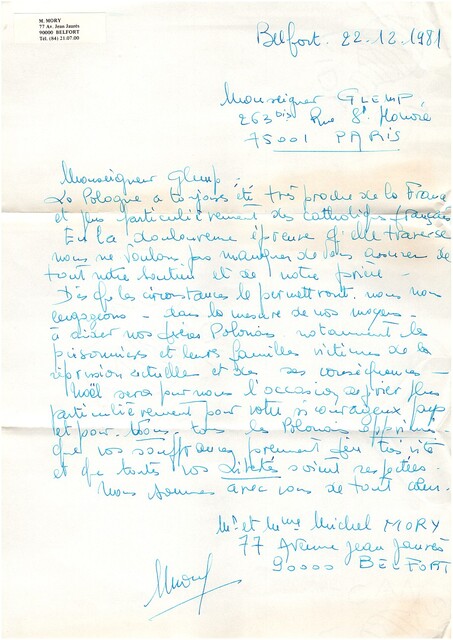 M. MORY
77 Av. Jean Jaurès
90000 BELFORT
Tél. (84) 21.07.00
Belfort. 22.12.1981
Monseigneur GLEMP,
263 bis Rue St Honoré
75001 PARIS
Monseigneur Glemp -
La Pologne a toujours été très proche de la France
et plus particulièrement des catholiques français
En la douloureuse épreuve qu'elle traverse
nous ne voulons pas manquer de vous assurer de
tout notre soutien et de notre prière -
Dès que les circonstances le permettront nous nous
engageons - dans la mesure de nos moyens -
à aider nos frères Polonais notamment les
prisonniers et leurs familles victimes de la
répression actuelle et de ses conséquences -
Noël sera pour nous l'occasion de prier plus
particulièrement pour votre si courageux pays
et pour tous les Polonais opprimés
que vos souffrances prennent fin très vite
et que toutes vos libertés soient respectées.
Nous sommes avec vous de tout cœur.
Mr et Mme Michel MORY
77 Avenue Jean Jaurès
90000 BELFORT
Mory